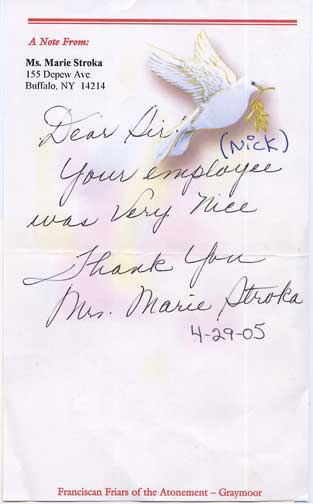 A Note From:
Ms. Marie Stroka
155 Depew Ave
Buffalo, NY 14214
Dear Sir!
(Nick)
Your employee
was Very Nice
Thank You
Mrs. Marie Stroka
4-29-05
Franciscan Friars of the Atonement – Graymoor